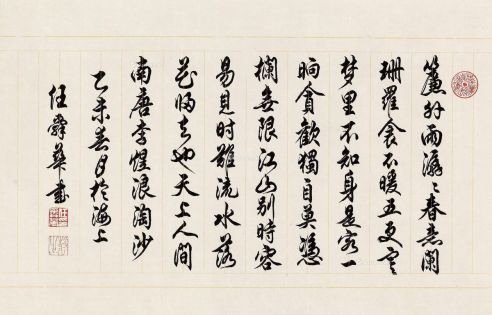 簾外雨潺々春意闌
珊羅衾不暖五更寒
梦里不知身是客一
晌貪歡獨自莫憑
欄無限江山別時容
易見时難流水落
花归去也天上人間
南唐李煜浪淘沙
乙未春月於海上
任舜華書